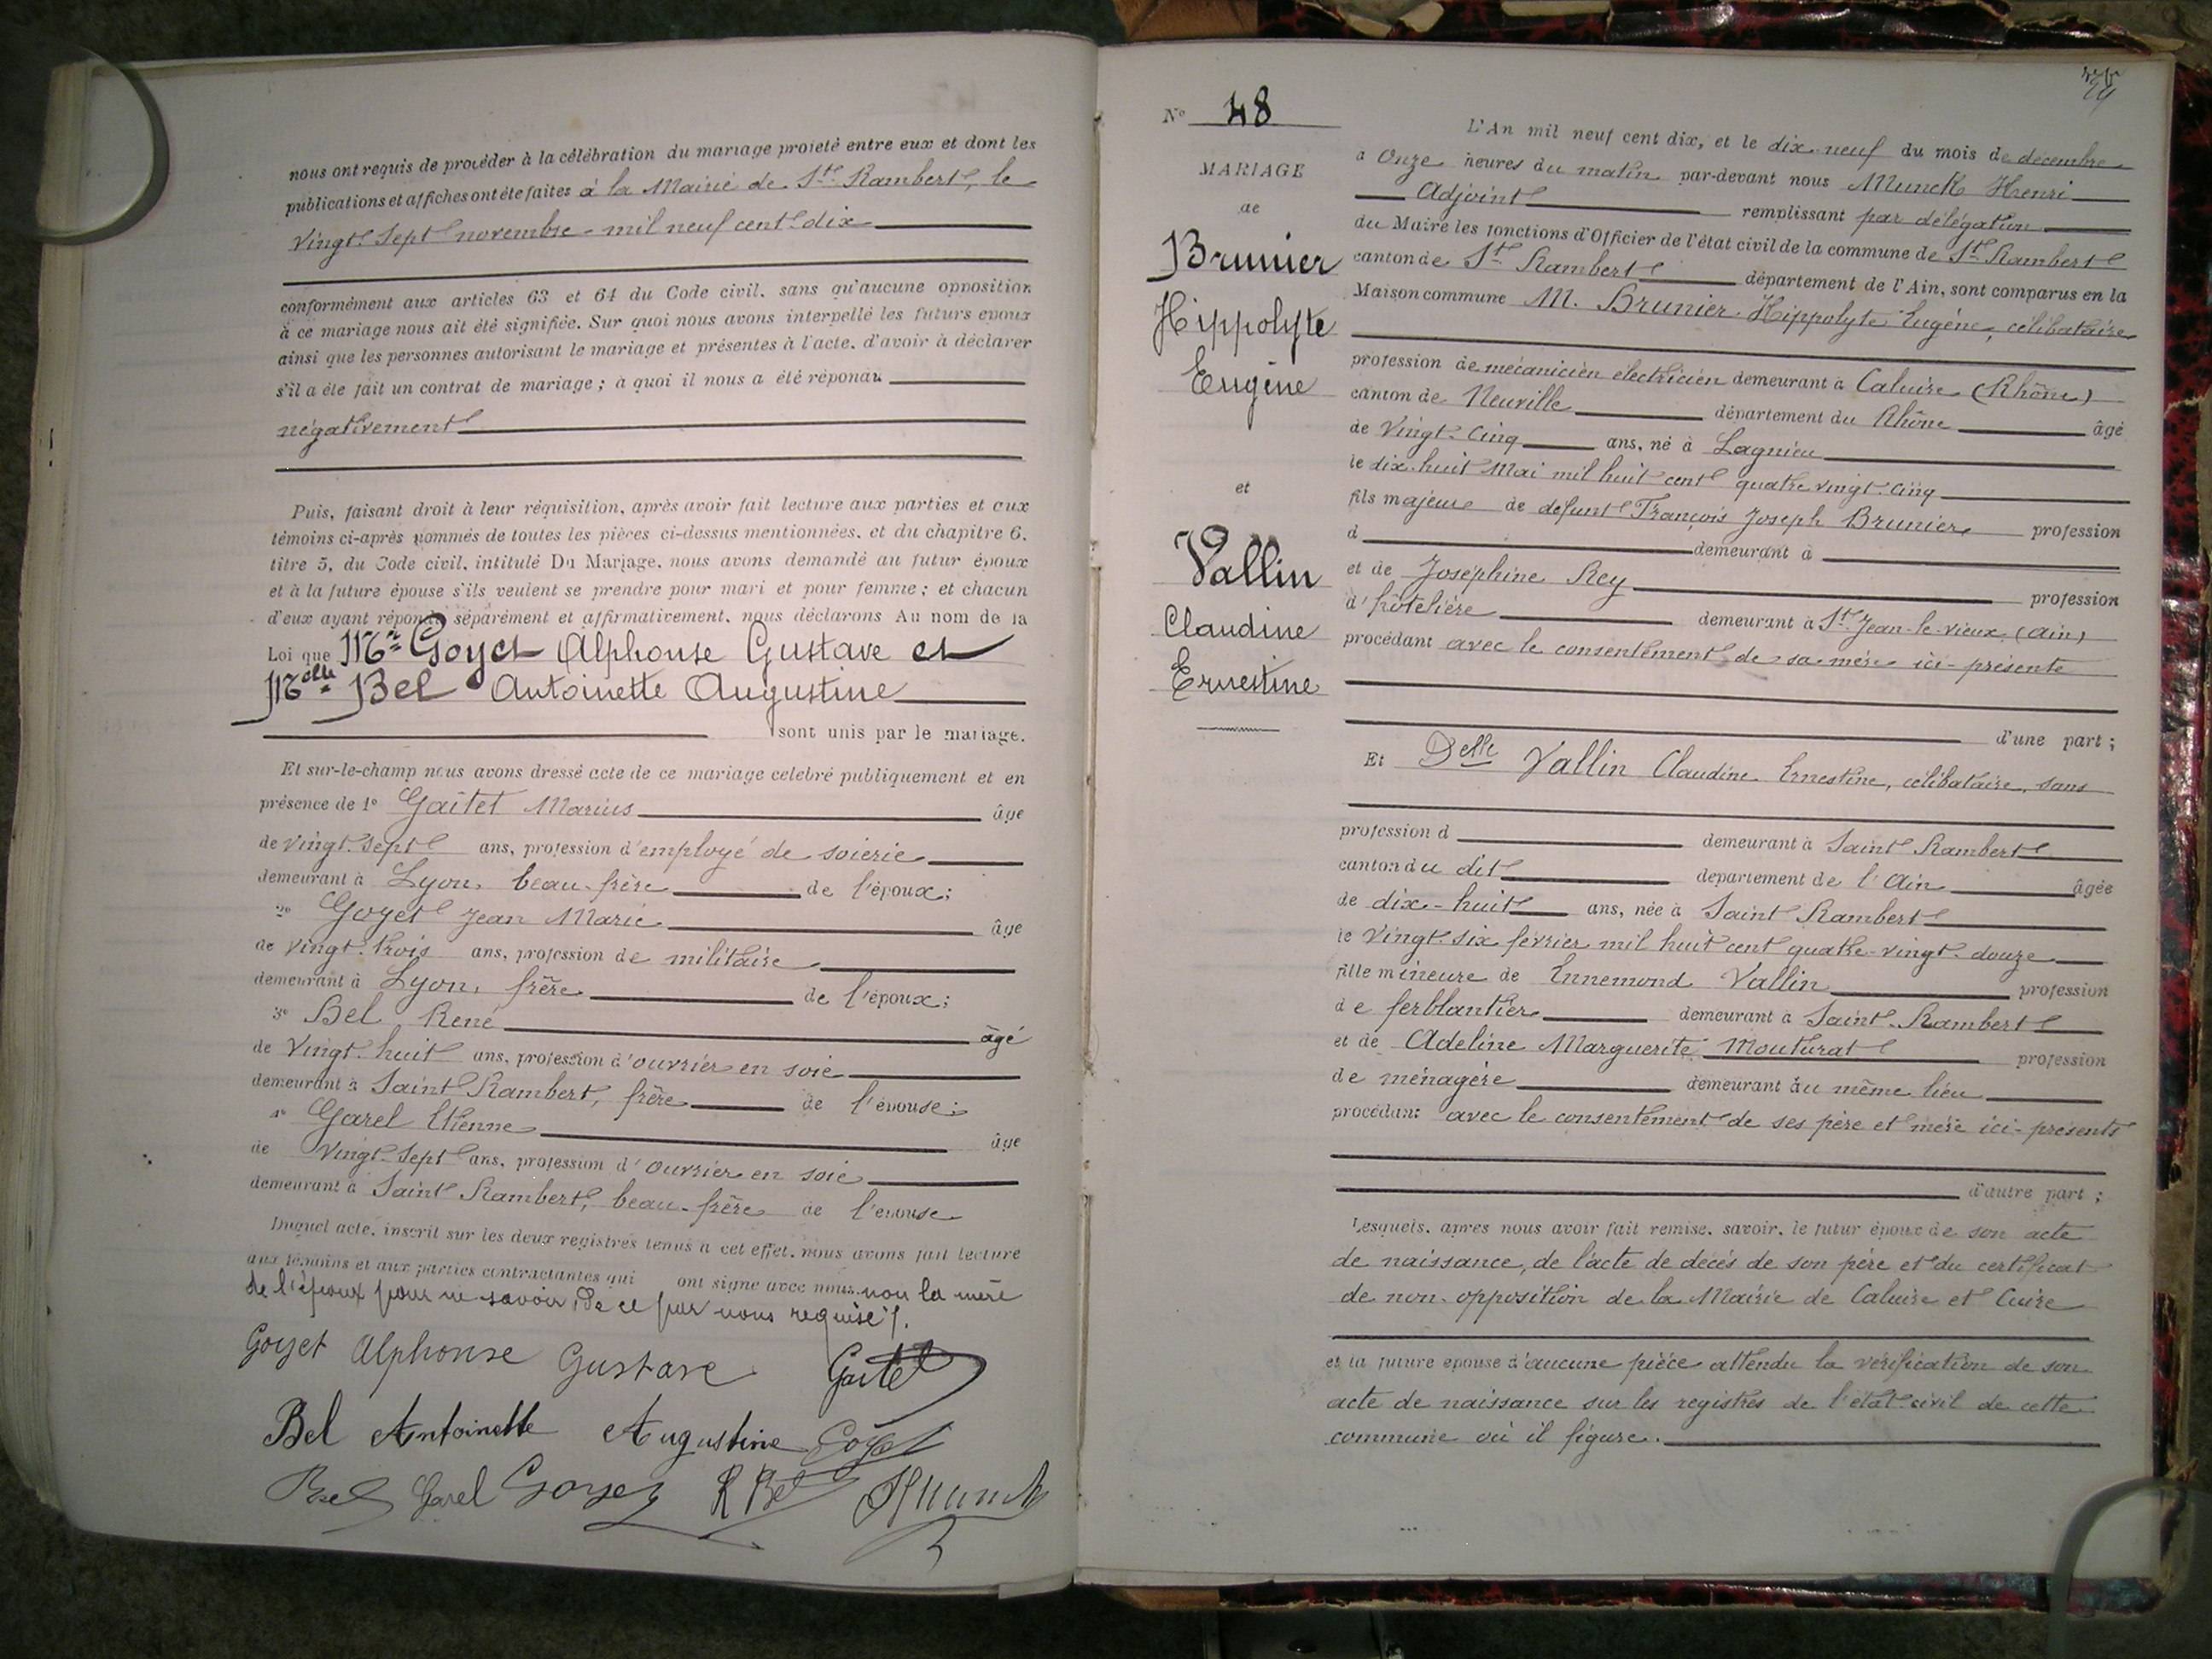 nous ont requis de procéder à la célébration du mariage projeté entre eux et dont les
publications et affiches ont été faites à la Mairie de St Rambert, le
vingt-sept novembre mil neuf cent dix
conformément aux articles 63 et 64 du Code civil, sans qu'aucune opposition
à ce mariage nous ait été signifiée. Sur quoi nous avons interpellé les futurs époux
ainsi que les personnes autorisant le mariage et présentes à l'acte, d'avoir à déclarer
s'il a été fait un contrat de mariage ; à quoi il nous a été répondu
négativement
Puis, faisant droit à leur réquisition, après avoir fait lecture aux parties et aux
témoins ci-après nommés de toutes les pièces ci-dessus mentionnées, et du chapitre 6,
titre 5, du Code civil, intitulé Du Mariage, nous avons demandé au futur époux
et à la future épouse s'ils veulent se prendre pour mari et pour femme ; et chacun
d'eux ayant répondu séparément et affirmativement, nous déclarons Au nom de la
Loi que Mr Goyet Alphonse Gustave et
Melle Bel Antoinette Augustine
sont unis par le mariage.
Et sur-le-champ nous avons dressé acte de ce mariage célébré publiquement et en
présence de 1° Gaîtet Marius âgé
de vingt-sept ans, profession d'employé de soierie
demeurant à Lyon, beau-frère de l'époux ;
2° Goyet Jean Marie âgé
de vingt-trois ans, profession de militaire
demeurant à Lyon, frère de l'époux ;
3° Bel René âgé
de vingt-huit ans, profession d'ouvrier en soie
demeurant à Saint Rambert, frère de l'épouse ;
4° Garel Etienne âgé
de vingt-sept ans, profession d'ouvrier en soie
demeurant à Saint Rambert, beau-frère de l'épouse
Duquel acte, inscrit sur les deux registres tenus à cet effet, nous avons fait lecture
aux témoins et aux parties contractantes qui ont signé avec nous non la mère
de l'époux pour ne savoir, de ce par nous requise.
Goyet Alphonse Gustave Gaitet
Bel Antoinette Augustine Goyet
Bel Garel Goyet R Bel HMunck
N° 48
MARIAGE
de
Brunier
Hippolyte
Eugène
et
Vallin
Claudine
Ernestine
L'An mil neuf cent dix, et le dix-neuf du mois de décembre
à Onze heures du matin par-devant nous Munck Henri
Adjoint remplissant par délégation
du Maire les fonctions d'Officier de l'état civil de la commune de St Rambert
canton de St Rambert département de l'Ain, sont comparus en la
Maison commune M. Brunier Hippolyte Eugène, célibataire
profession de mécanicien électricien demeurant à Caluire (Rhône)
canton de Neuville département du Rhône âgé
de vingt-cinq ans, né à Lagnieu
le dix-huit Mai mil huit cent quatre vingt-cinq
fils majeur de défunt François Joseph Brunier profession
d demeurant à
et de Joséphine Rey profession
d'hôtelière demeurant à St Jean-le-vieux (Ain)
procédant avec le consentement de sa mère ici-présente
d'une part ;
Et Delle Vallin Claudine Ernestine, célibataire, sans
profession d demeurant à Saint Rambert
canton du dit département de l'Ain âgée
de dix-huit ans, née à Saint Rambert
le vingt-six février mil huit cent quatre-vingt-douze
fille mineure de Ennemond Vallin profession
de ferblantier demeurant à Saint-Rambert
et de Adeline Marguerite Mouturat profession
de ménagère demeurant au même lieu
procédant avec le consentement de ses père et mère ici-présents
d'autre part ;
Lesquels, après nous avoir fait remise, savoir, le futur époux de son acte
de naissance, de l'acte de décès de son père et du certificat
de non-opposition de la Mairie de Caluire et Cuire
et la future épouse d'aucune pièce attendu la vérification de son
acte de naissance sur les registres de l'état-civil de cette
commune où il figure.